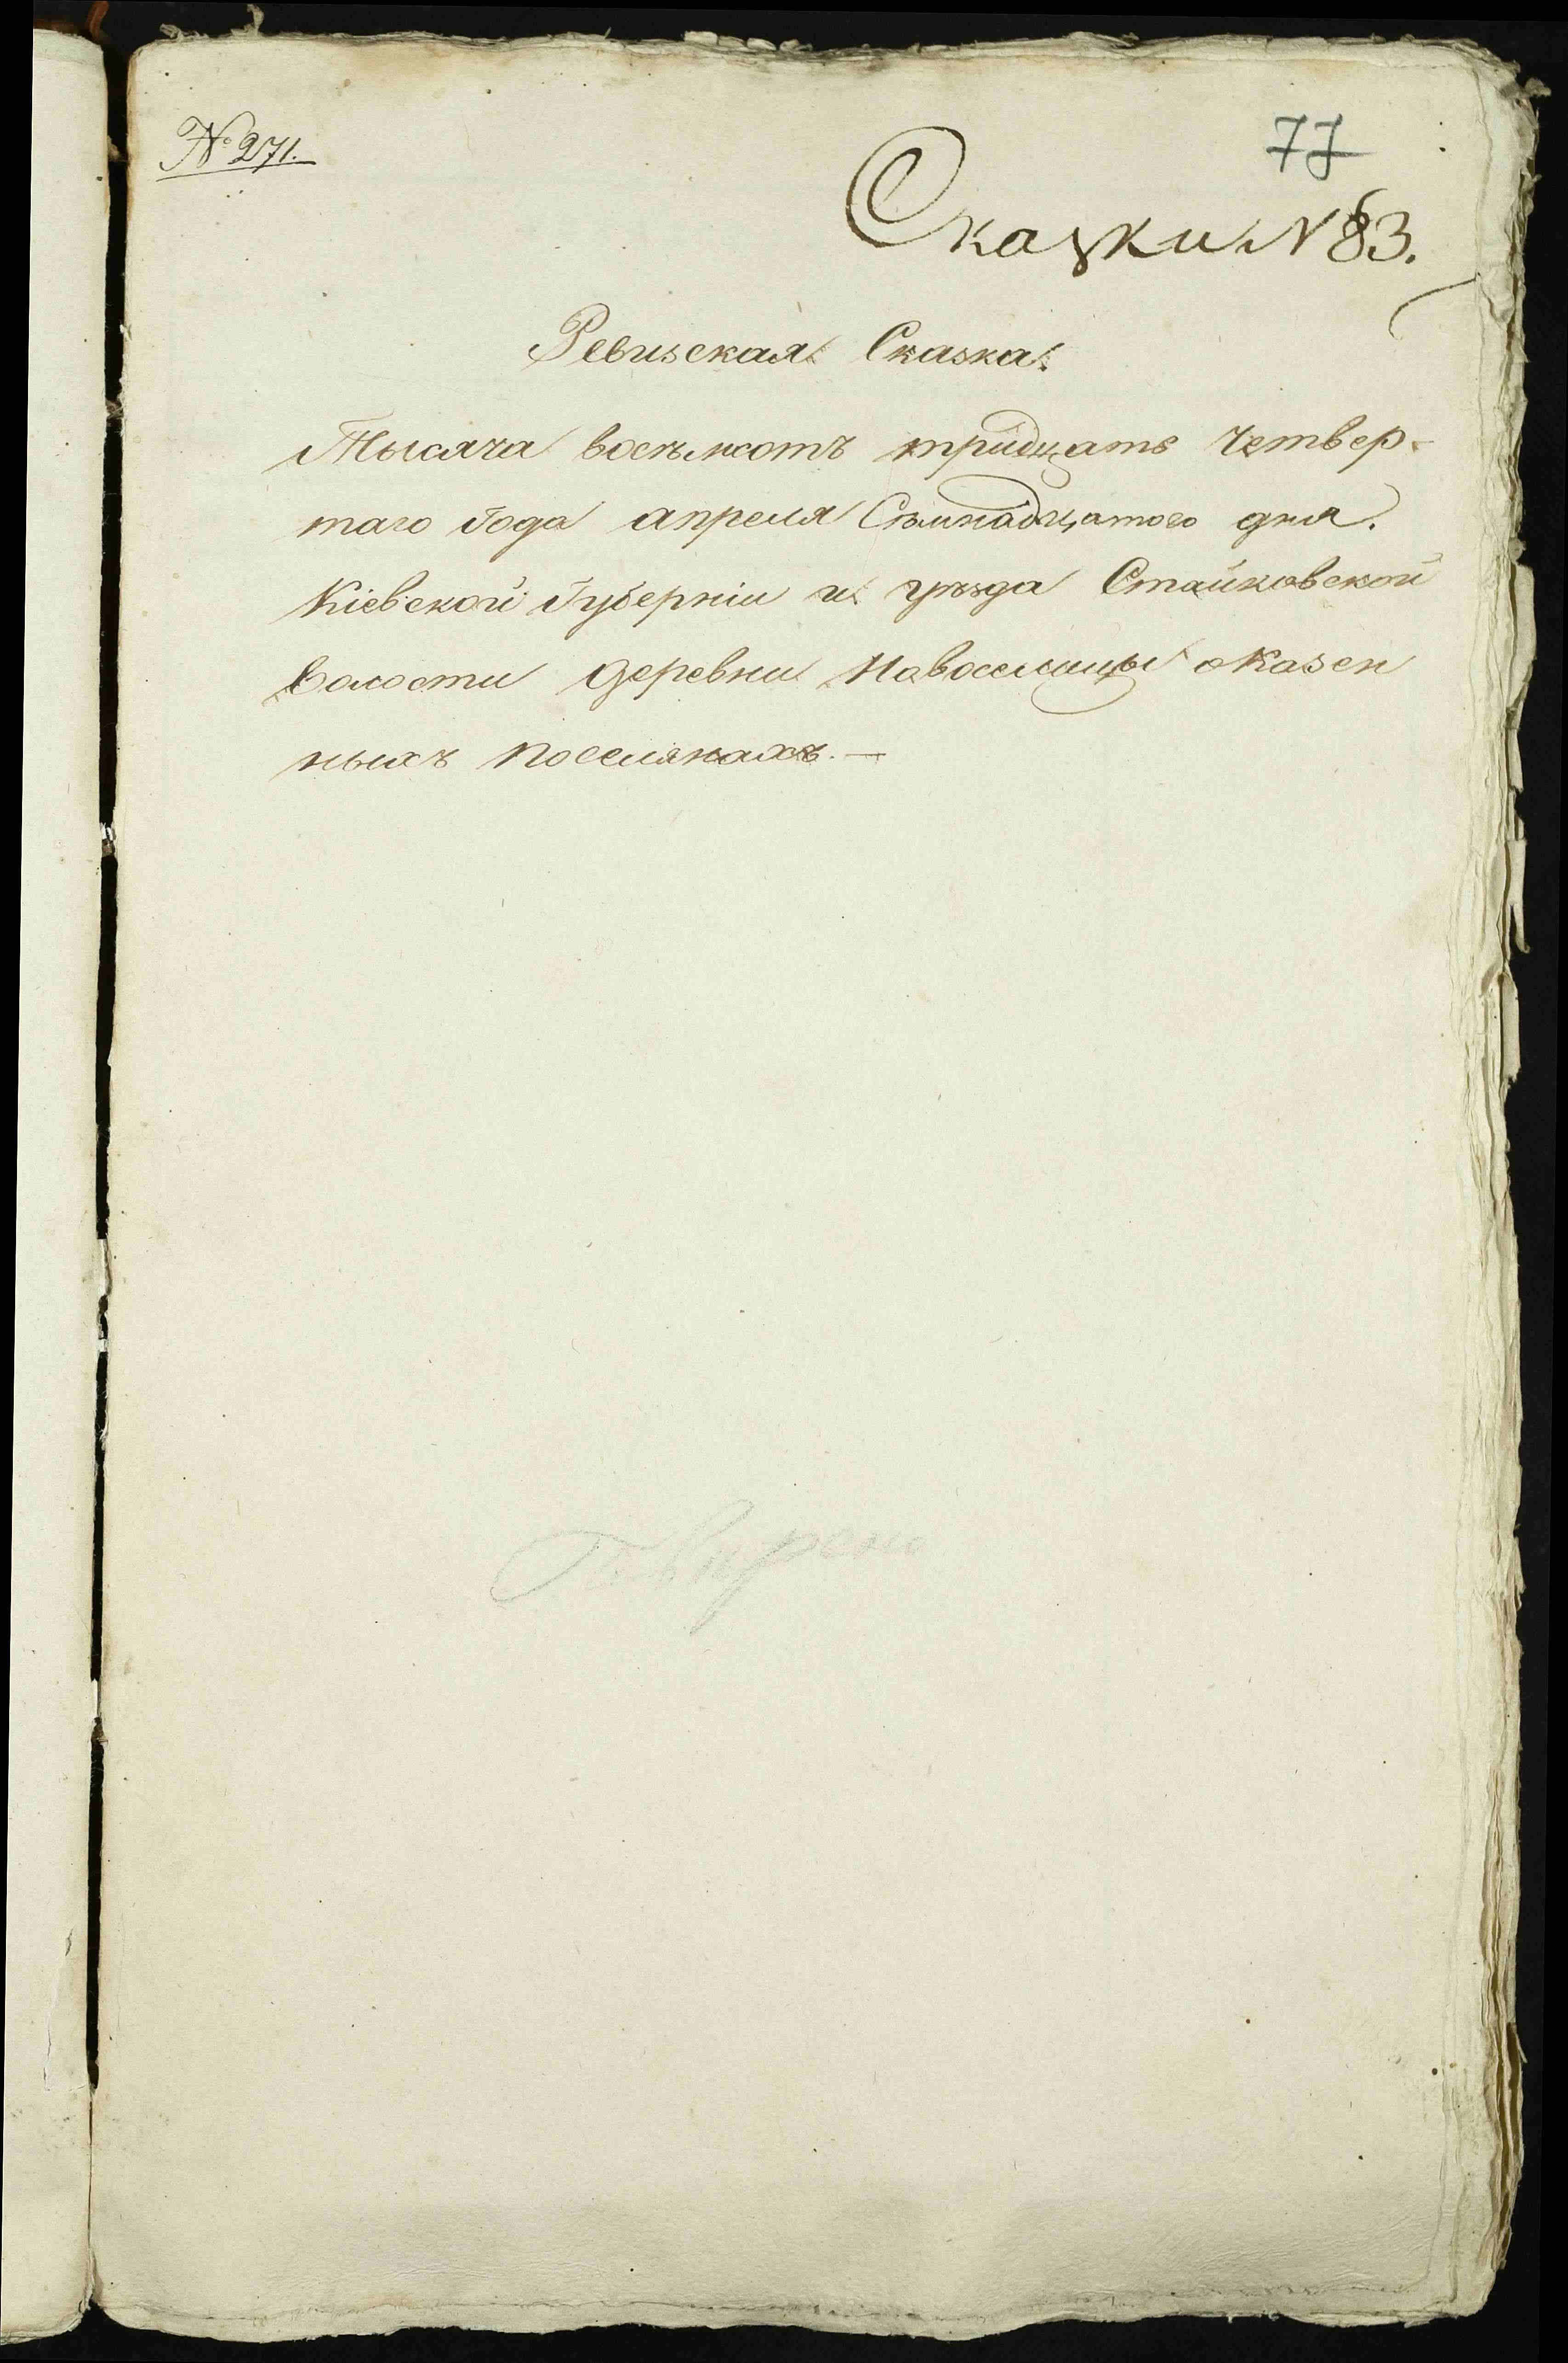 № 271.
77
Сказки № 83.
Ревизская Сказка.
Тысяча восемьсотъ тридцать четвер-
таго Года апреля Съмнадцатого дня.
Кіевской Губерніи и уѣзда Стайковской
волости деревни Новоселицы оказен
ныхъ поселянахъ. —